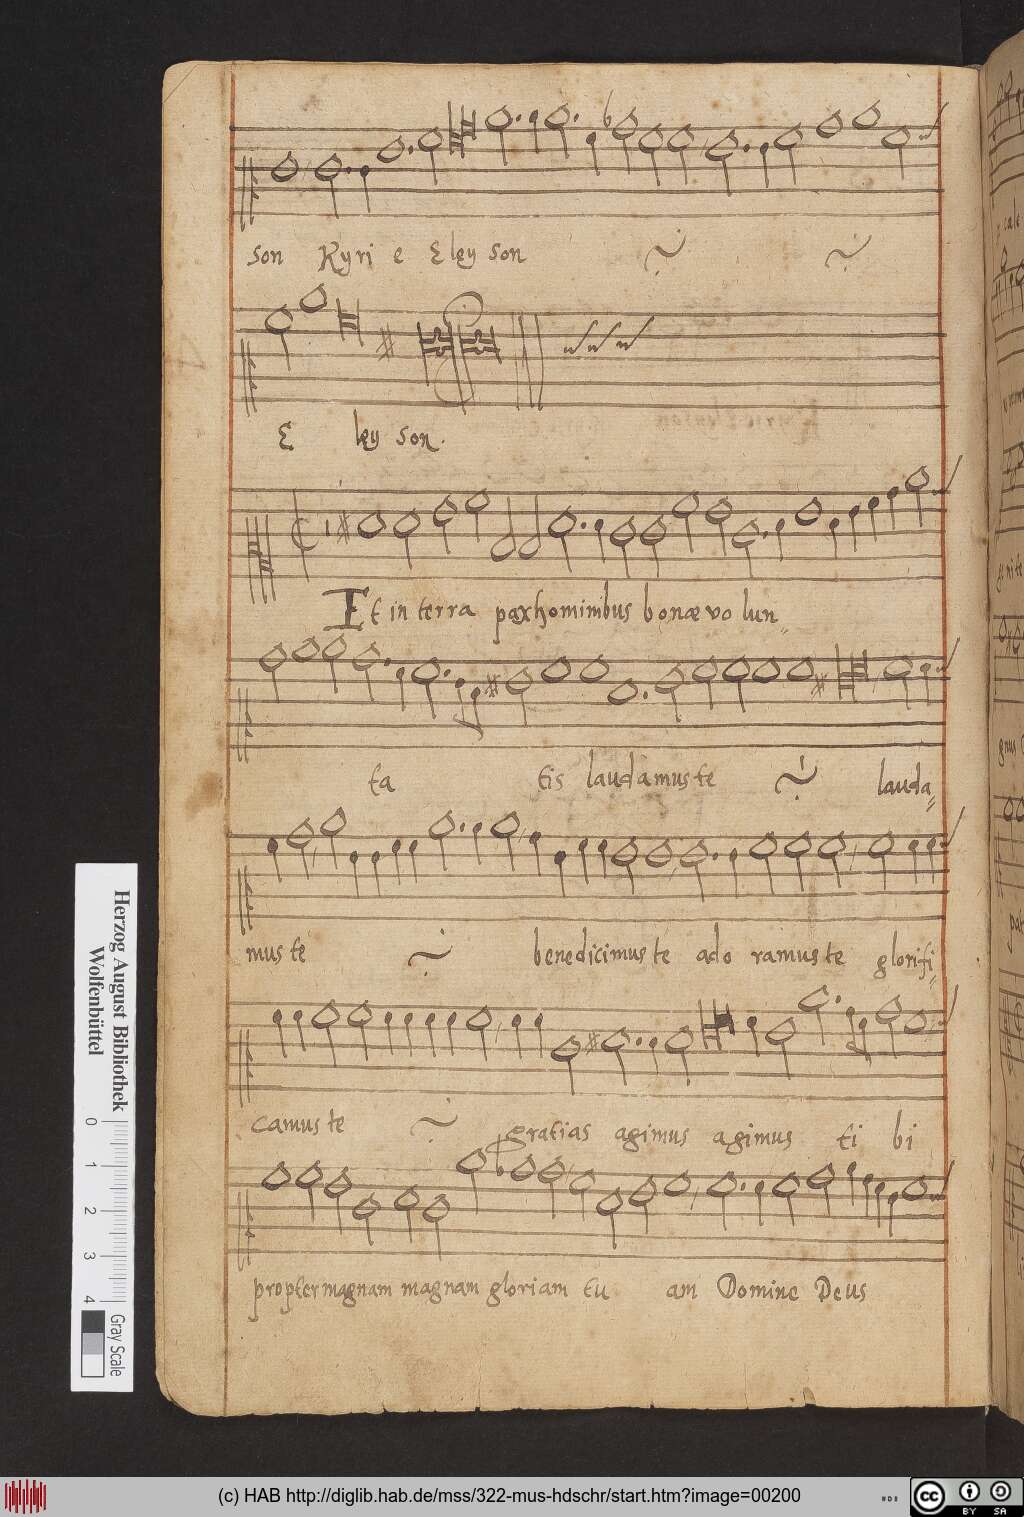 son Kyri e Eley son
E ley son.
Et in terra pax hominibus bonæ vo lun
ta tis laudamus te lauda
mus te benedicimus te ado ramus te glorifi
camus te gratias agimus agimus ti bi
propter magnam magnam gloriam tu am Domine Deus
Herzog August Bibliothek
Wolfenbüttel
0 1 2 3 4
Gray Scale
(c) HAB http://diglib.hab.de/mss/322-mus-hdschr/start.htm?image=00200
cc BY SA